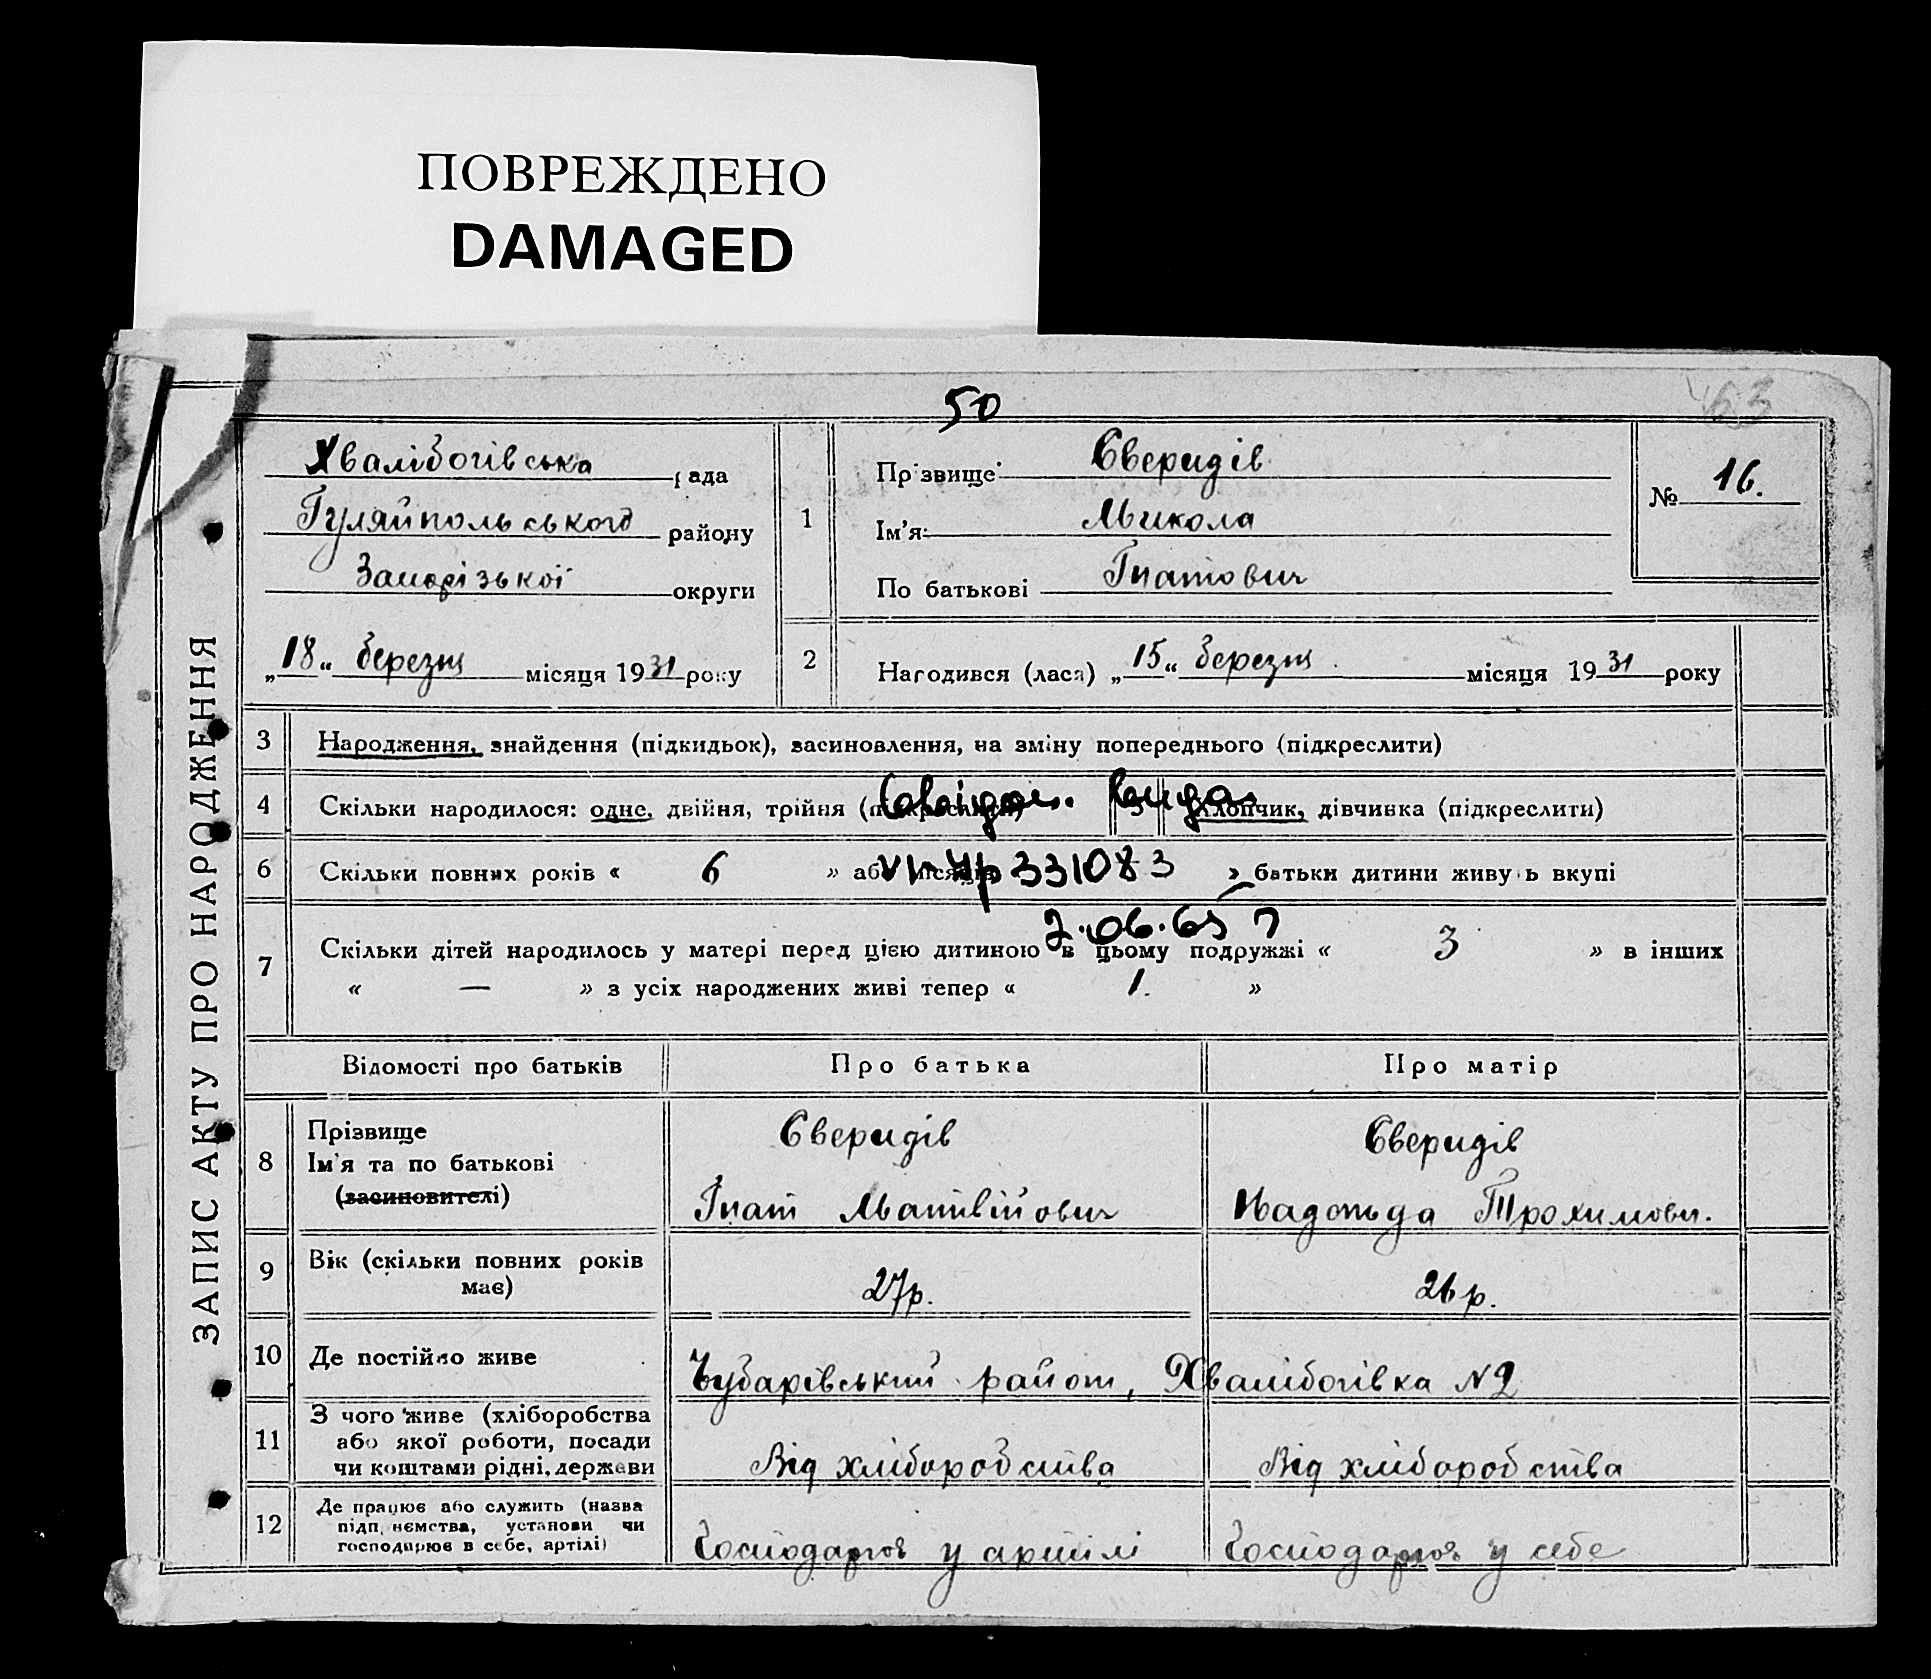 ПОВРЕЖДЕНО
DAMAGED
50
ЗАПИС АКТУ ПРО НАРОДЖЕННЯ
Хвалібогівська рада
Гуляйпольського району
Запорізької округи
„18“ березня місяця 1931 року
1
Прізвище Єверидів
Ім’я: Микола
По батькові Гнатович
№ 16.
2
Народився (лася) „15“ березня місяця 1931 року
3 Народження, знайдення (підкидьок), засиновлення, на зміну попереднього (підкреслити)
4 Скільки народилося: одне, двійня, трійня (підкреслити) 5 Хлопчик, дівчинка (підкреслити)
6 Скільки повних років « 6 » або місяців » батьки дитини живуть вкупі
331083
2.06.65
7 Скільки дітей народилось у матері перед цією дитиною в цьому подружжі « 3 » в інших
« — » з усіх народжених живі тепер « 1. »
Відомості про батьків Про батька Про матір
8 Прізвище Єверидів Єверидів
Ім’я та по батькові
(засиновителі) Гнат Матвійович Трохимовн.
9 Вік (скільки повних років має) 27р. 26р.
10 Де постійно живе Чубарівський район, Хвалібогівка №2
11 З чого живе (хліборобства
або якої роботи, посади
чи коштами рідні, держави Від хліборобства Від хліборобства
12 Де працює або служить (назва
підприємства, установи чи
господарює в себе, артілі) Господарює у артілі Господарює у себе